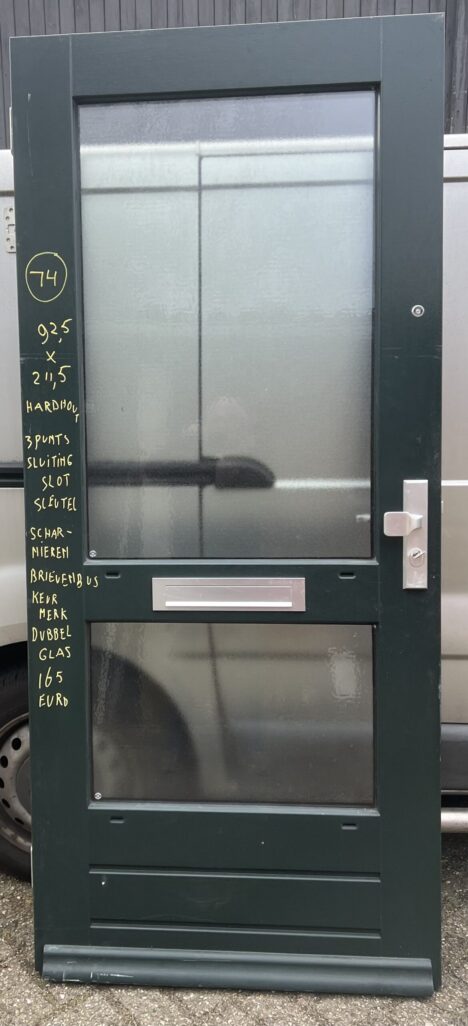 74
92,5
X
211,5
HARDHOUT
3 PUNTS
SLUITING
SLOT
SLEUTEL
SCHAR-
NIEREN
BRIEVENBUS
KEUR
MERK
DUBBEL
GLAS
165
EURO